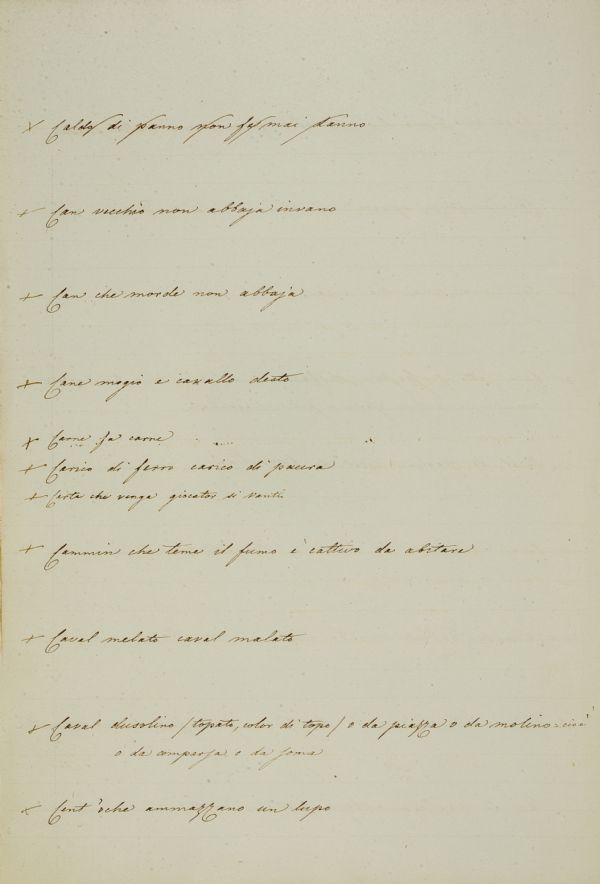 × Caldo di panno non fe' mai danno
+ Can vecchio non abbaja invano
+ Can che morde non abbaja
+ Cane mogio e cavallo desto
× Carne fa carne
+ Carico di ferro carico di paura
+ Carta che venga giocator si vanti
+ Cammin che teme il fumo è cattivo da abitare
+ Caval melato caval malato
+ Caval (topato, color di topo) o da piazza o da molino = cioè
o da comparsa o da soma
× Cent'oche ammazzano un lupo